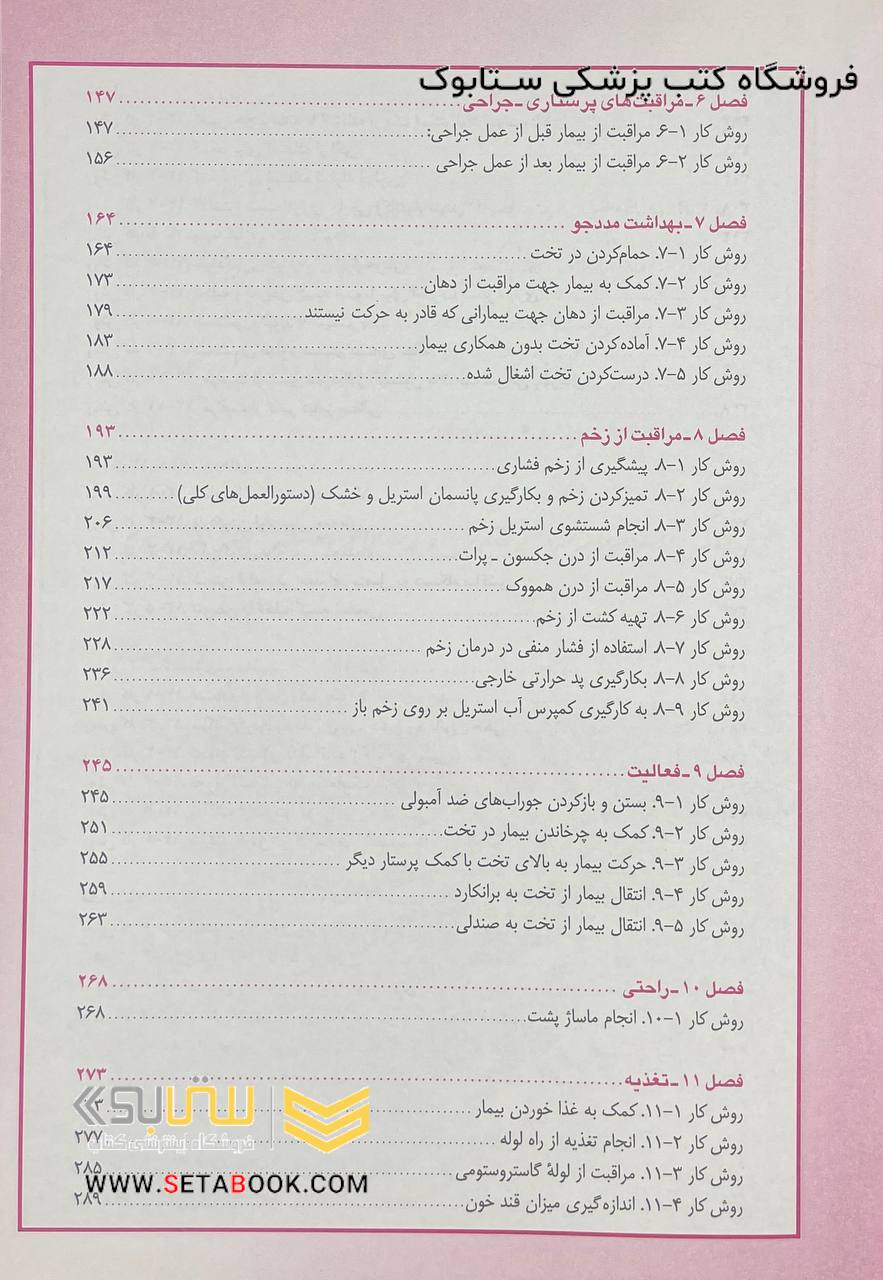 فروشگاه کتب پزشکی ستابوک
فصل ۶ـ مراقبت‌های پرستاری ـ جراحی ........ ۱۴۷
روش کار ۱–۶. مراقبت از بیمار قبل از عمل جراحی: ........ ۱۴۷
روش کار ۲–۶. مراقبت از بیمار بعد از عمل جراحی ........ ۱۵۶
فصل ۷ـ بهداشت مددجو ........ ۱۶۴
روش کار ۱–۷. حمام‌کردن در تخت ........ ۱۶۴
روش کار ۲–۷. کمک به بیمار جهت مراقبت از دهان ........ ۱۷۳
روش کار ۳–۷. مراقبت از دهان جهت بیمارانی که قادر به حرکت نیستند ........ ۱۷۹
روش کار ۴–۷. آماده‌کردن تخت بدون همکاری بیمار ........ ۱۸۳
روش کار ۵–۷. درست‌کردن تخت اشغال شده ........ ۱۸۸
فصل ۸ـ مراقبت از زخم ........ ۱۹۳
روش کار ۱–۸. پیشگیری از زخم فشاری ........ ۱۹۳
روش کار ۲–۸. تمیزکردن زخم و بکارگیری پانسمان استریل و خشک (دستورالعمل‌های کلی) ........ ۱۹۹
روش کار ۳–۸. انجام شستشوی استریل زخم ........ ۲۰۶
روش کار ۴–۸. مراقبت از درن جکسون ـ پرات ........ ۲۱۲
روش کار ۵–۸. مراقبت از درن همووک ........ ۲۱۷
روش کار ۶–۸. تهیه کشت از زخم ........ ۲۲۲
روش کار ۷–۸. استفاده از فشار منفی در درمان زخم ........ ۲۲۸
روش کار ۸–۸. بکارگیری پد حرارتی خارجی ........ ۲۳۶
روش کار ۹–۸. به کارگیری کمپرس آب استریل بر روی زخم باز ........ ۲۴۱
فصل ۹ـ فعالیت ........ ۲۴۵
روش کار ۱–۹. بستن و بازکردن جوراب‌های ضد آمبولی ........ ۲۴۵
روش کار ۲–۹. کمک به چرخاندن بیمار در تخت ........ ۲۵۱
روش کار ۳–۹. حرکت بیمار به بالای تخت با کمک پرستار دیگر ........ ۲۵۵
روش کار ۴–۹. انتقال بیمار از تخت به برانکارد ........ ۲۵۹
روش کار ۵–۹. انتقال بیمار از تخت به صندلی ........ ۲۶۳
فصل ۱۰ـ راحتی ........ ۲۶۸
روش کار ۱–۱۰. انجام ماساژ پشت ........ ۲۶۸
فصل ۱۱ـ تغذیه ........ ۲۷۳
روش کار ۱–۱۱. کمک به غذا خوردن بیمار ........
روش کار ۲–۱۱. انجام تغذیه از راه لوله ........ ۲۷۷
روش کار ۳–۱۱. مراقبت از لولهٔ گاستروستومی ........ ۲۸۵
روش کار ۴–۱۱. اندازه‌گیری میزان قند خون ........ ۲۸۹
ستابوک
فروشگاه اینترنتی کتاب
WWW.SETABOOK.COM